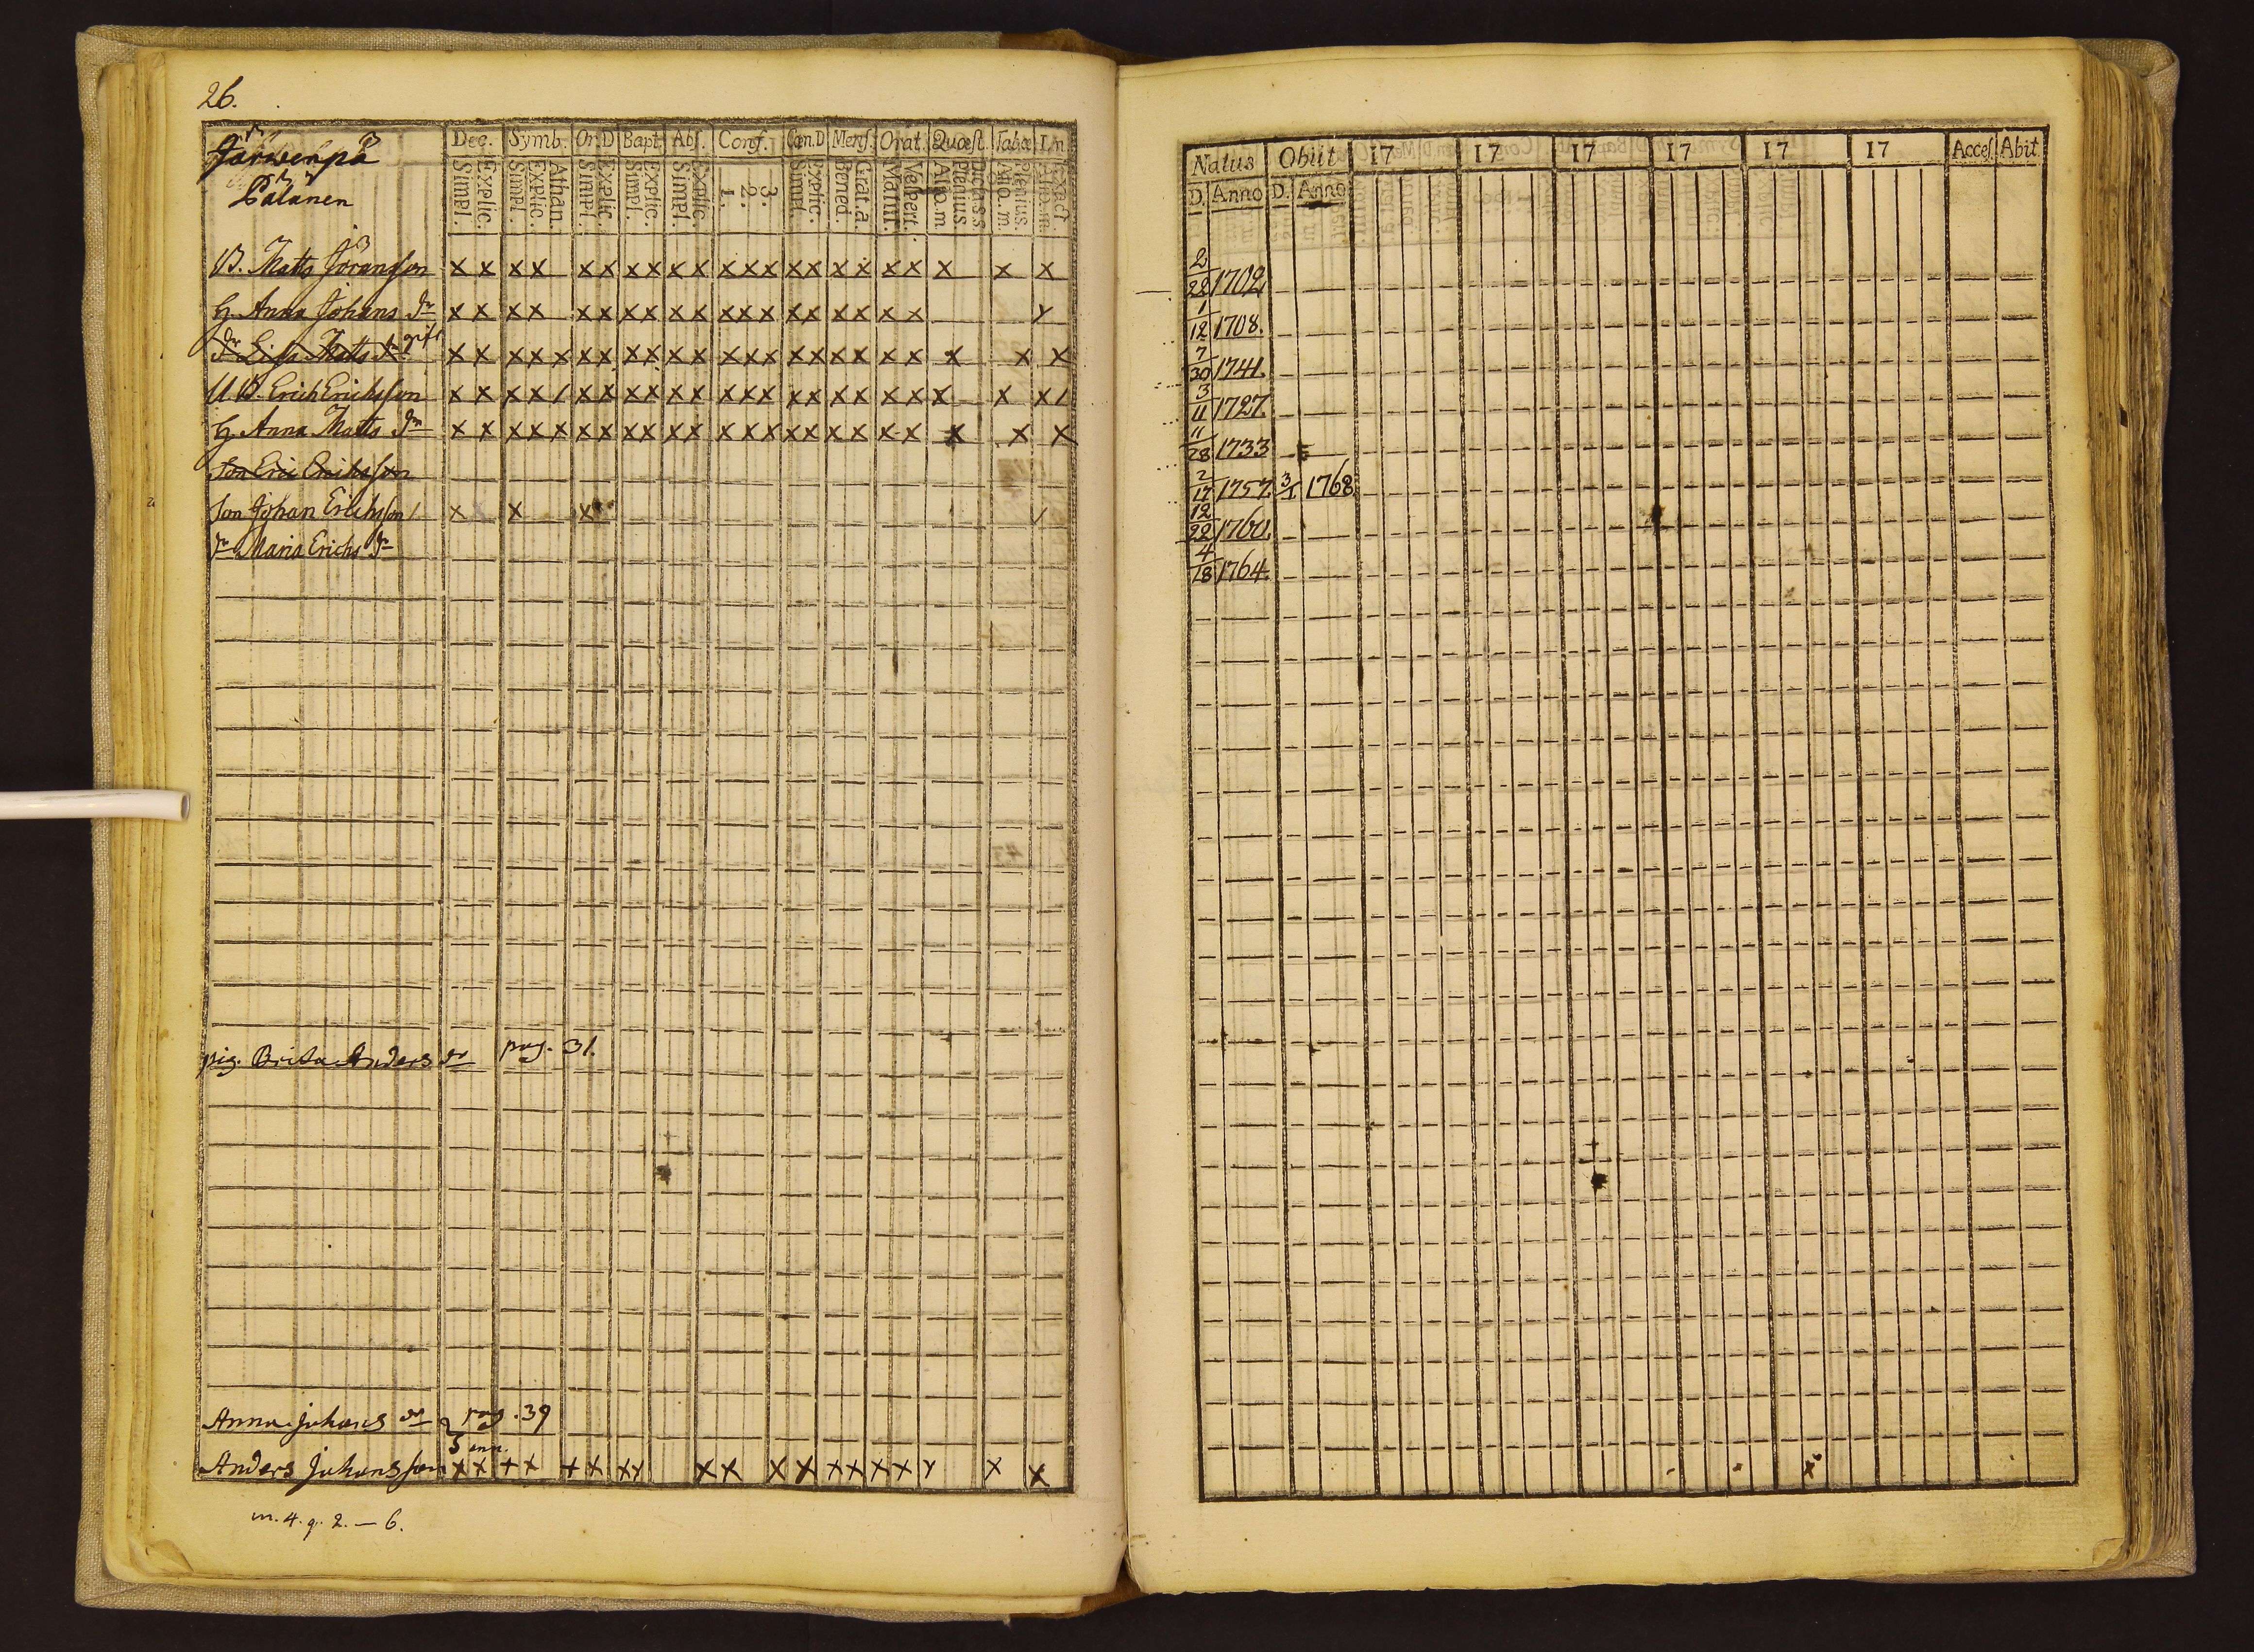 26.
Järwenpä
Pälänen
Dec. Symb. Or.D Bapt. Abs. Conf. Cœn.D Mens. Orat. Quæst. Tabæ
Simpl. Explic. Simpl. Explic. Athan. Simpl. Explic. Simpl. Explic. Simpl. Explic. 1. 2. 3. Simpl. Explic. Bened. Grat.a. Matut. Vespert. Aliq.m Plenius Aliq.m. Plenius. Exact
B. Matts Jöransson x x x x x x x x x x x x x x x x x x x x x x
H. Anna Johans dr x x x x x x x x x x x x x x x x x x x
dr Lisa Matts dr gift x x x x x x x x x x x x x x x x x x x x x x x
U B. Erich Erichsson x x x x / x x x x x x x x x x x x x x x x x x /
H. Anna Matts dr x x x x x x x x x x x x x x x x x x x x x x x
Son Eric Erichsson
Son Johan Erichson / x x x
dr Maria Erichs dr
pig. Brita Anders dr pag. 31.
Anna Johans dr pag. 39
Anders Johansson x x + x + x x x x x x x x x x x x x
m. 4. q. 2. — 6.
Natus Obiit 17 17 17 17 17 17 Acces Abit
D. Anno D. Anno
2/22 1702
1/12 1708.
7/30 1741.
3/11 1727.
11/28 1733
2/17 1757. 3/1 1768
12/22 1760.
4/18 1764.